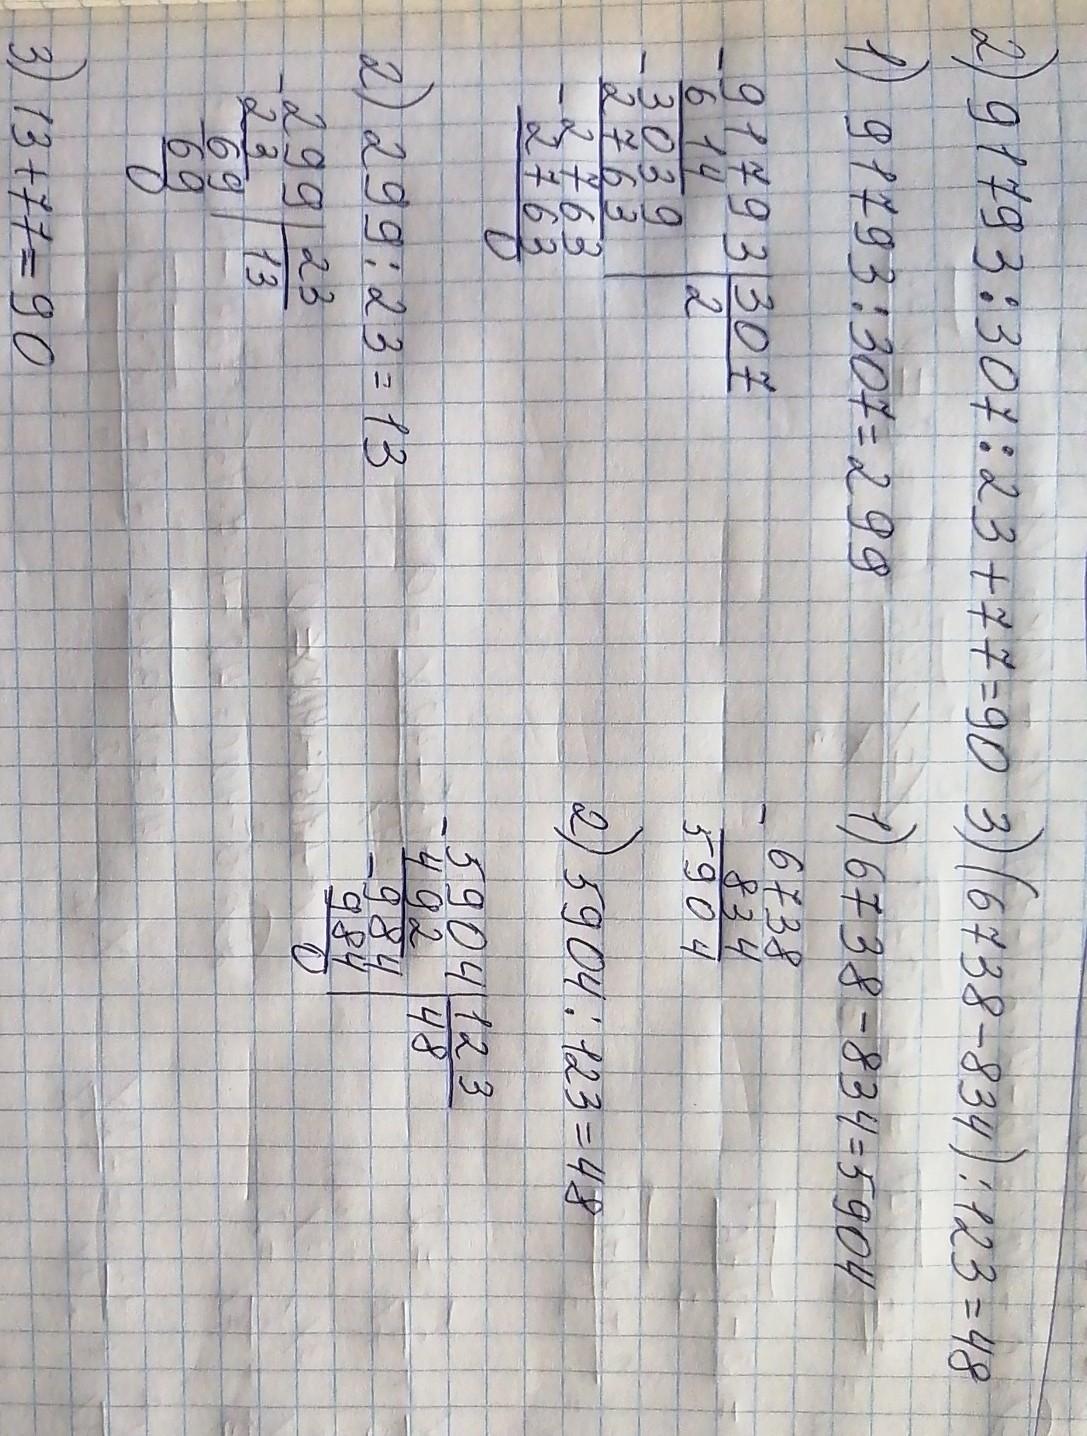 2) 91793:307:23+77=90
1) 91793:307=299
-91793|307
614 2
-3039
2763
-2763
2763
0
2) 299:23=13
-299|23
23 13
69
69
0
3) 13+77=90
3) (6738-834):123=48
1) 6738-834=5904
-6738
834
5904
2) 5904:123=48
-5904|123
492 48
-984
984
0